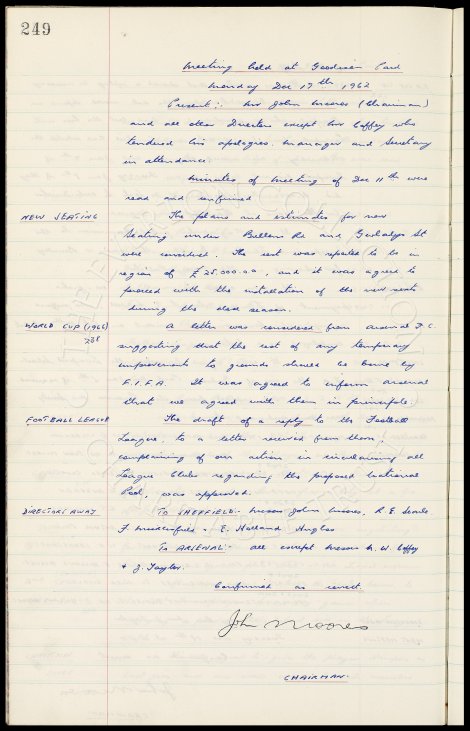 249
Meeting held at Goodison Park
Monday Dec 17th 1962
Present:- Mr John Moores (Chairman)
and all other Directors except Mr Coffey who
tendered his apologies. Manager and Secretary
in attendance.
Minutes of Meeting of Dec 11th were
read and confirmed
NEW SEATING
The plans and estimates for new
Seating under Bullens Rd and Gwladys St
were considered. The cost was reported to be in
region of £25.000.00, and it was agreed to
proceed with the installation of the new seats
during the close season.
WORLD CUP (1966)
238
A letter was considered from Arsenal F.C.
suggesting that the cost of any temporary
improvements to grounds should be borne by
F.I.F.A. It was agreed to inform Arsenal
that we agreed with them in principle.
FOOTBALL LEAGUE
The draft of a reply to the Football
League, to a letter received from them,
complaining of our action in circularising all
League Clubs regarding the proposed National
Pool, was approved.
DIRECTORS AWAY
TO SHEFFIELD:- Messrs John Moores, R. E. Searle
F. Micklesfield & E. Holland Hughes
TO ARSENAL:- All except Messrs N. W. Coffey
& J. Taylor.
Confirmed as correct.
John Moores
CHAIRMAN.